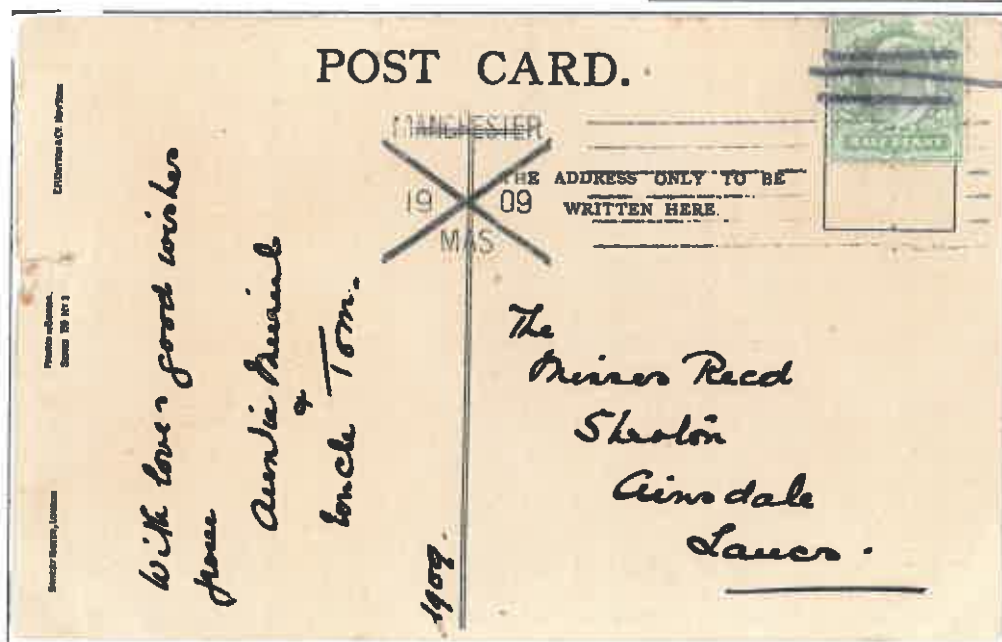 POST CARD.
MANCHESTER
19 09
MAS
THE ADDRESS ONLY TO BE
WRITTEN HERE.
HALFPENNY
With love & good wishes
from
Auntie
&
Uncle Tom.
1909.
The
Misses Reed
Ainsdale
Lancs.